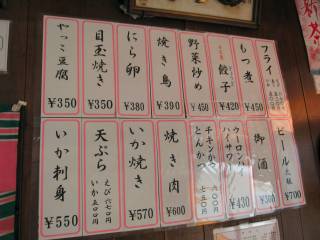 フライ
もつ煮
餃子
¥420
野菜炒め
¥450
焼き鳥
¥390
にら卵
¥380
目玉焼き
¥350
やっこ豆腐
¥350
ビール 大瓶
¥700
御酒
¥300
ウーロンハイ
サワー
¥430
チキンかつ
とんかつ
焼き肉
¥600
いか焼き
¥570
天ぷら
えび 六七〇円
いか 五〇〇円
いか刺身
¥550